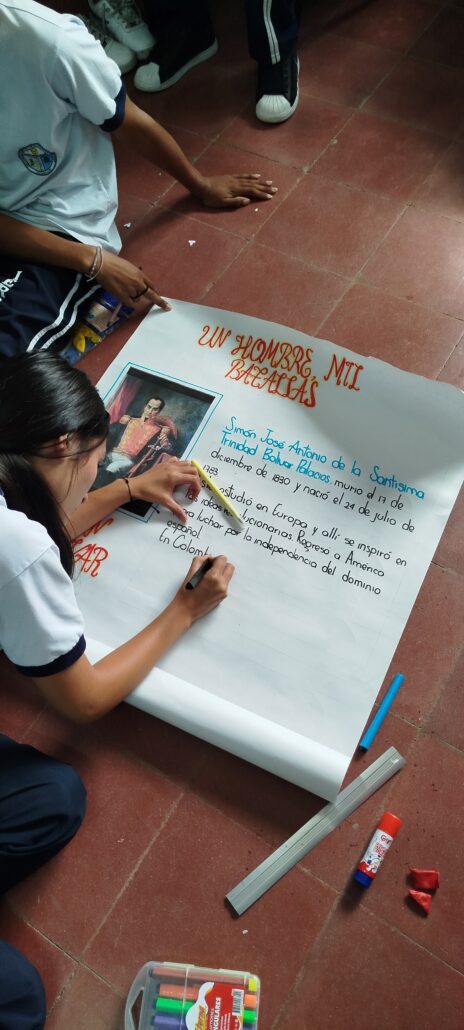 UN HOMBRE, MIL
BATALLAS
Simón José Antonio de la Santísima
Trinidad Bolívar Palacios, murió el 17 de
diciembre de 1830 y nació el 24 de julio de
1783.
estudió en Europa y allí se inspiró en
las ideas revolucionarias. Regreso a América
para luchar por la independencia del dominio
español.
En Colomb